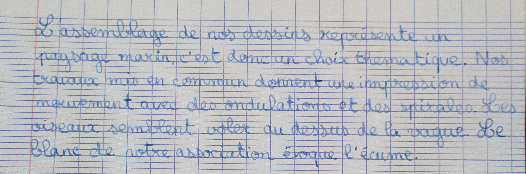 L'assemblage de nos dessins représente un
paysage marin, c'est donc un choix thématique. Nos
travaux mis en commun donnent une impression de
mouvement avec des ondulations et des spirales. Les
oiseaux semblent voler au dessus de la vague. Le
blanc de notre association évoque l'écume.